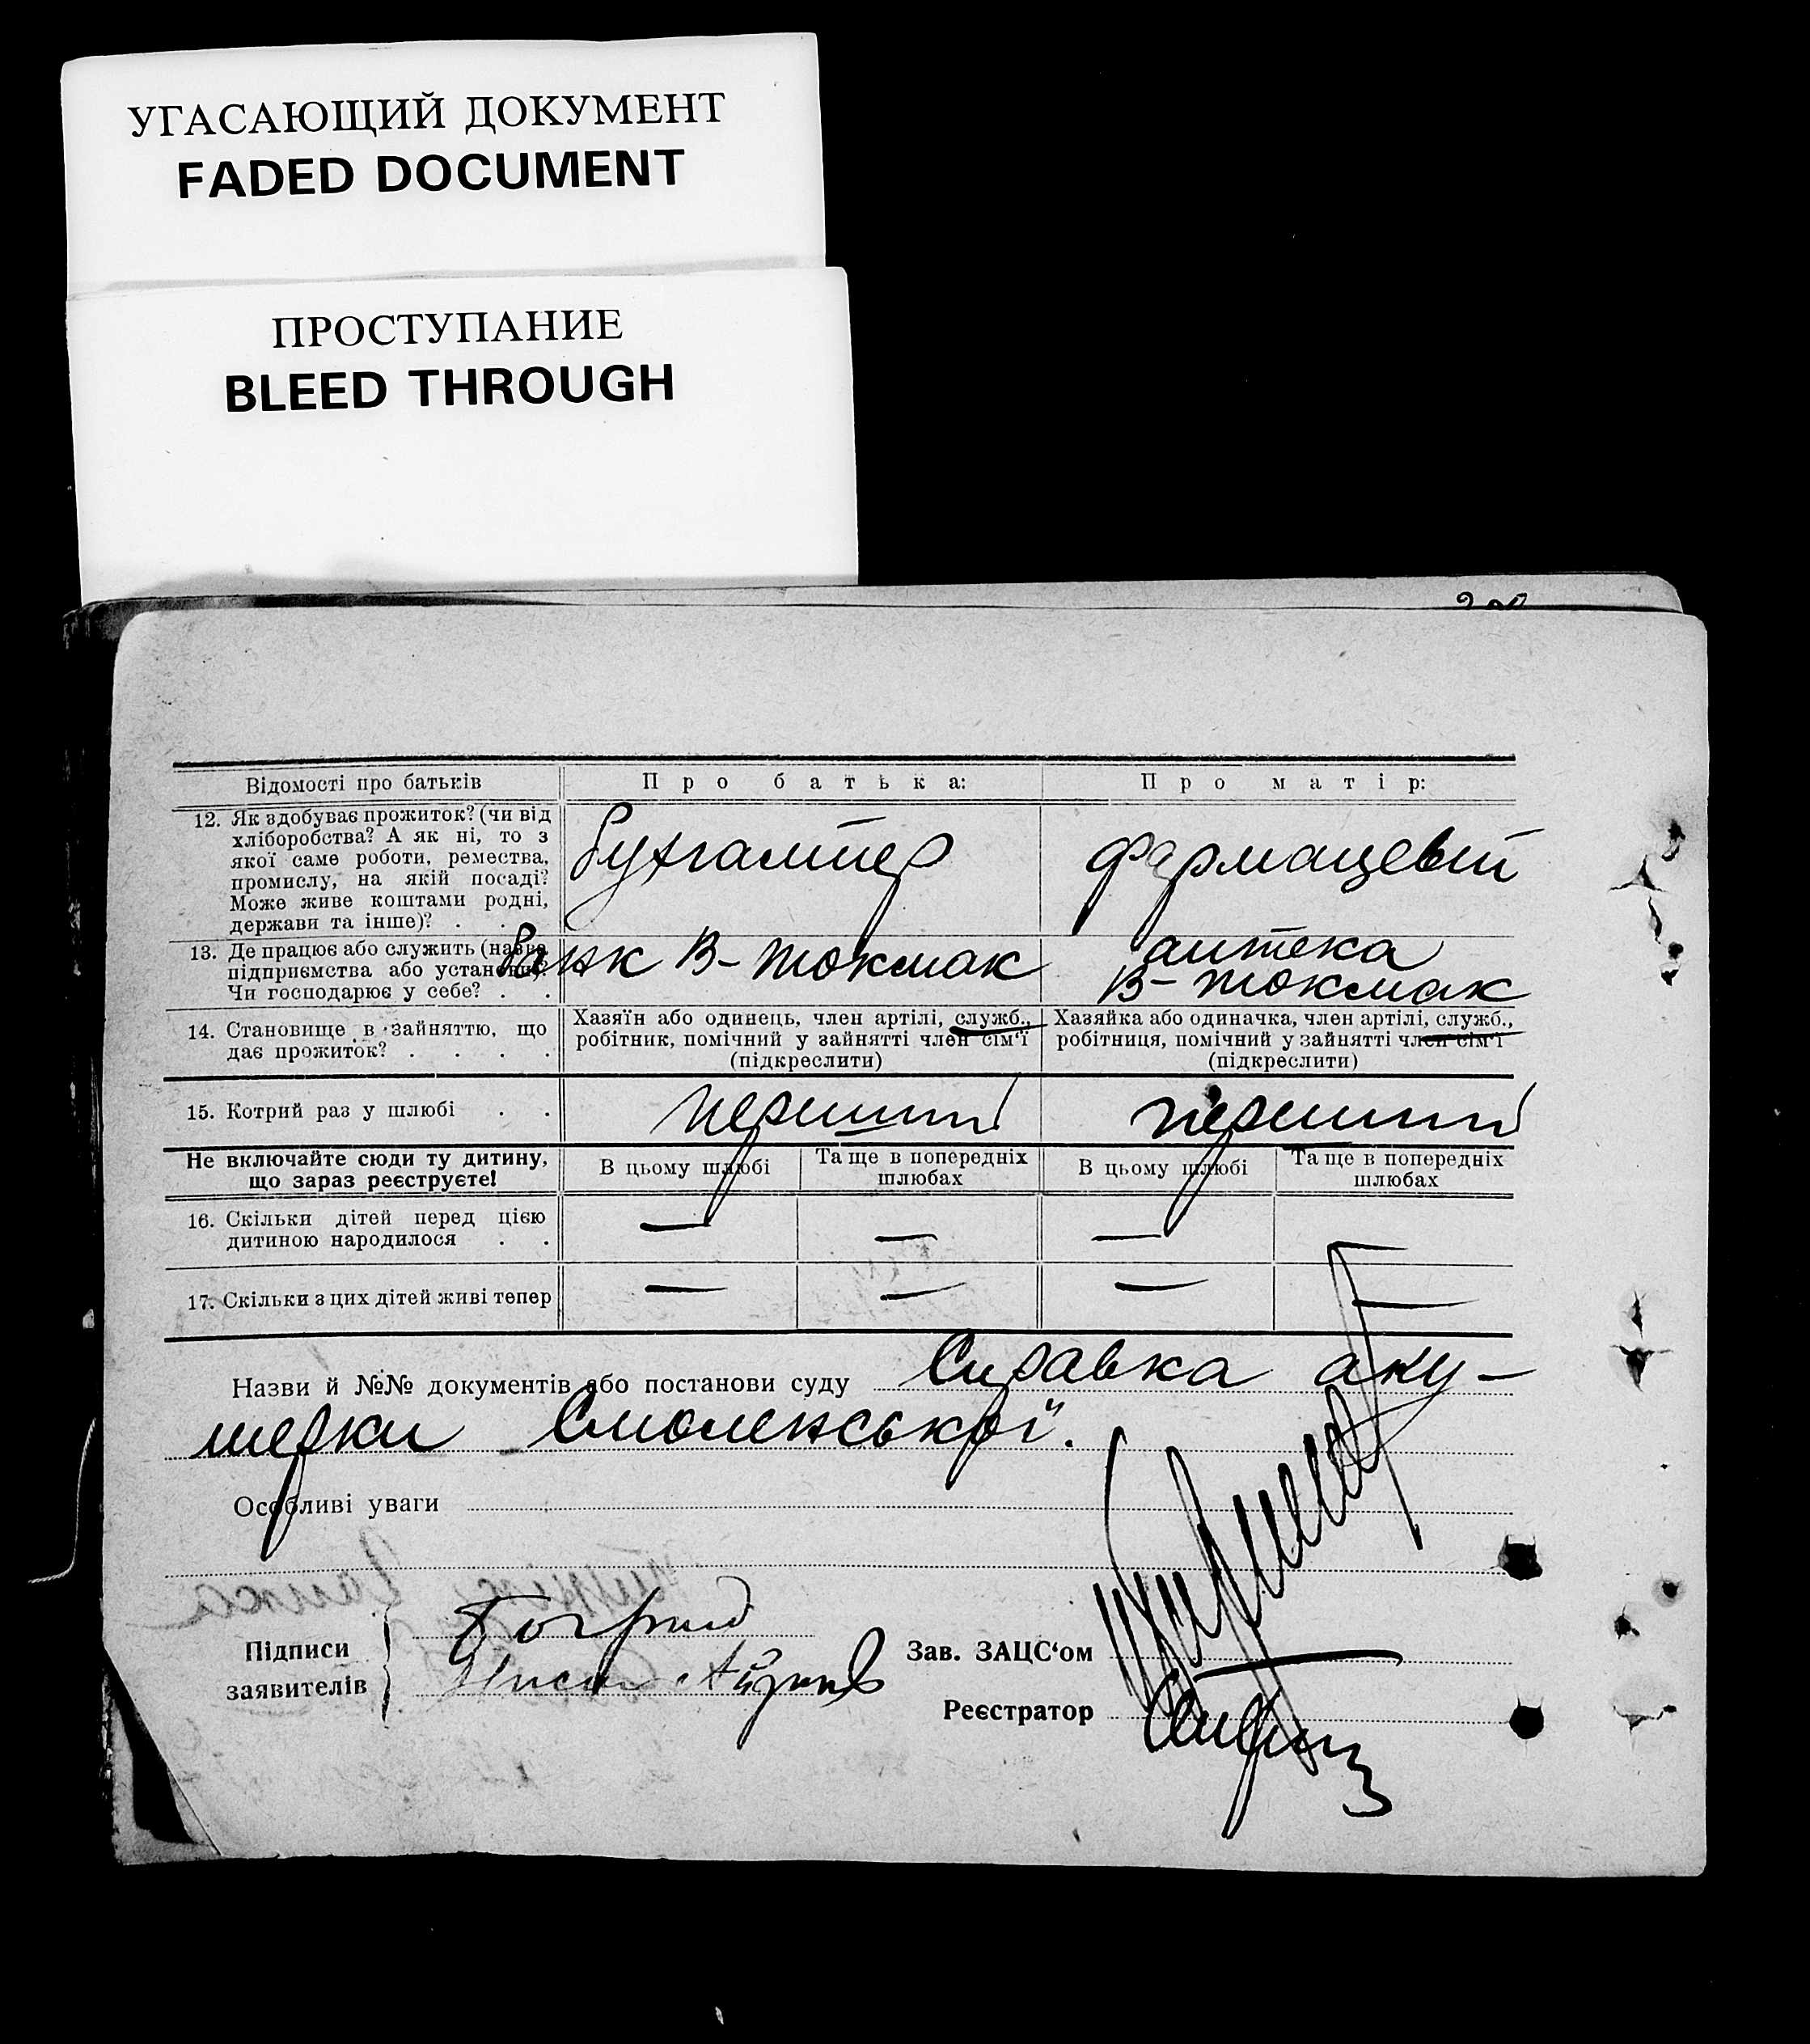 УГАСАЮЩИЙ ДОКУМЕНТ
FADED DOCUMENT
ПРОСТУПАНИЕ
BLEED THROUGH
Відомості про батьків
Про батька:
Про матір:
12. Як здобуває прожиток? (чи від
хліборобства? А як ні, то з
якої саме роботи, ремества,
промислу, на якій посаді?
Може живе коштами родні,
держави та інше)? . . .
бухгалтер
фармацевт
13. Де працює або служить (назва
підприємства або установи)?
Чи господарює у себе? . .
банк В-Токмак
аптека
В-Токмак
14. Становище в зайняттю, що
дає прожиток? . . . .
Хазяїн або одинець, член артілі, служб.,
робітник, помічний у зайнятті член сім'ї
(підкреслити)
Хазяйка або одиначка, член артілі, служб.,
робітниця, помічний у зайнятті член сім'ї
(підкреслити)
15. Котрий раз у шлюбі . .
перший
перший
Не включайте сюди ту дитину,
що зараз реєструєте!
В цьому шлюбі
Та ще в попередніх
шлюбах
В цьому шлюбі
Та ще в попередніх
шлюбах
16. Скільки дітей перед цією
дитиною народилося . .
— — —
17. Скільки з цих дітей живі тепер
— — — —
Назви й №№ документів або постанови суду Справка аку-
шерки Смоленської.
Особливі уваги
Підписи
заявителів
Зав. ЗАЦС'ом
Реєстратор